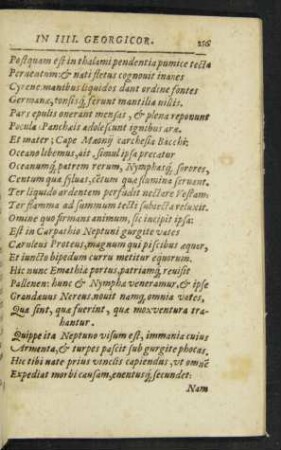 IN IIII. GEORGICOR. 226
Postquam est in thalami pendentia pumice tecta
Peruentum: & nati fletus cognouit inanes
Cyrene: manibus liquidos dant ordine fontes
Germanæ, tonsisq; ferunt mantilia villis.
Pars epulis onerant mensas, & plena reponunt
Pocula: Panchæis adolescunt ignibus aræ.
Et mater; Cape Mæonij carchesia Bacchi:
Oceano libemus, ait, simul ipsa precatur
Oceanumq; patrem rerum, Nymphasq; sorores,
Centum quæ syluas, cētum quæ flumina seruant.
Ter liquido ardentem perfudit nectare Vestam:
Ter flamma ad summum tecti subiecta reluxit.
Omine quo firmans animum, sic incipit ipsa:
Est in Carpathio Neptuni gurgite vates
Cæruleus Proteus, magnum qui piscibus æquor,
Et iuncto bipedum curru metitur equorum.
Hic nunc Emathiæ portus, patriamq; reuisit
Pallenen: hunc & Nymphæ veneramur, & ipse
Grandæuus Nereus. nouit namq; omnia vates,
Quæ sint, quæ fuerint, quæ mox ventura tra-
hantur.
Quippe ita Neptuno visum est, immania cuius
Armenta, & turpes pascit sub gurgite phocas.
Hic tibi nate prius vinclis capiendus, vt omnē
Expediat morbi causam, euentusq; secundet:
Nam